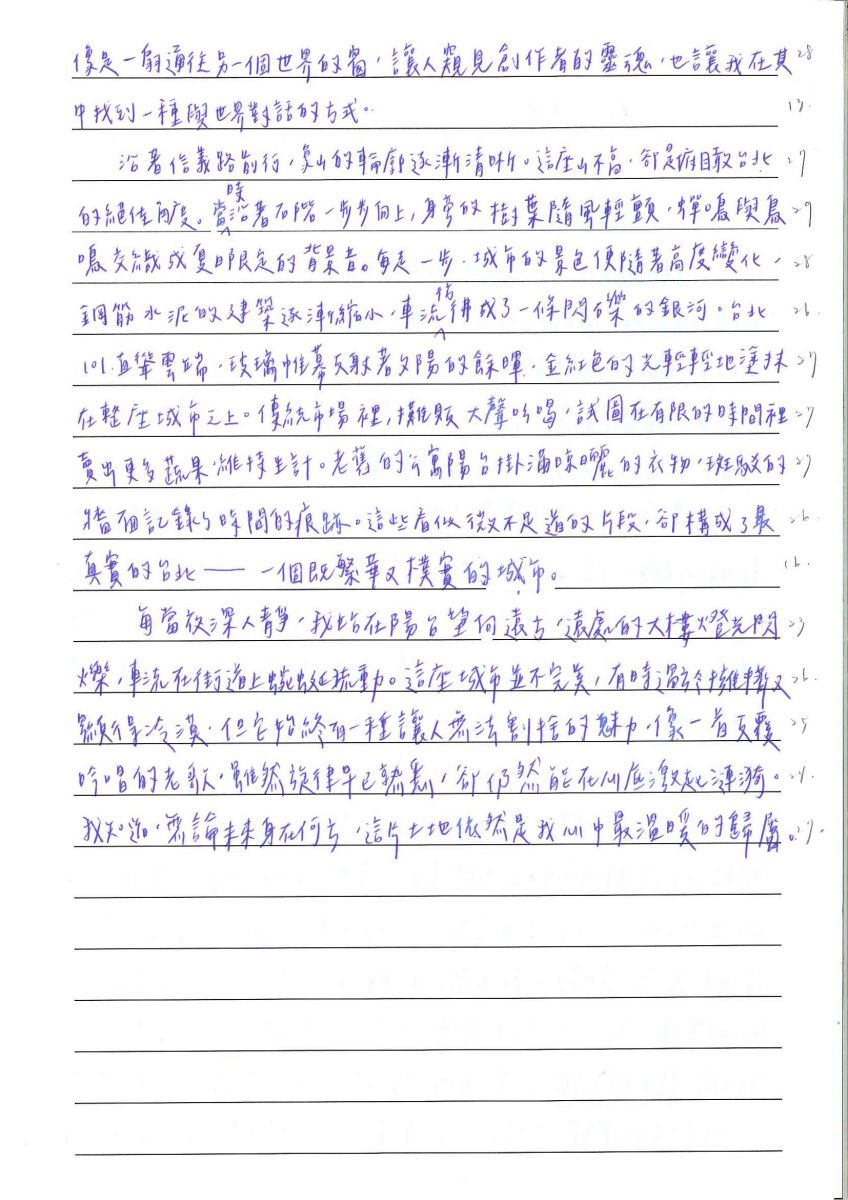 像是一扇通往另一個世界的窗，讓人窺見創作者的靈魂，也讓我在其 28
中找到一種與世界對話的方式。 13.
沿著信義路前行，象山的輪廓逐漸清晰。這座山不高，卻是俯瞰台北 27
的絕佳角度。當時沿著石階一步步向上，身旁的樹葉隨風輕顫，蟬鳴與鳥 29
鳴交織成夏日限定的背景音。每走一步，城市的景色便隨著高度變化， 28
鋼筋水泥的建築逐漸縮小，車流彷彿成了一條閃礫的銀河。台北 26
101直聳雲端，玻璃帷幕反射著夕陽的餘暉，金紅色的光輕輕地塗抹 27
在整座城市之上。傳統市場裡，攤販大聲吆喝，試圖在有限的時間裡 27
賣出更多蔬果，維持生計。老舊的公寓陽台掛滿晾曬的衣物，斑駁的 27
牆面記錄了時間的痕跡。這些看似微不足道的片段，卻構成了最 26
真實的台北——一個既繁華又樸實的城市。 16.
每當夜深人靜，我站在陽台望向遠方，遠處的大樓燈光閃 23
爍，車流在街道上蜿蜒流動。這座城市並不完美，有時過於擁擠又 26.
顯得冷漠，但它始終有一種讓人無法割捨的魅力，像一首反覆 25
吟唱的老歌，雖然旋律早已熟悉，卻仍然能在心底激起漣漪。 24.
我知道，無論未來身在何方，這片土地依然是我心中最溫暖的歸屬。 27.